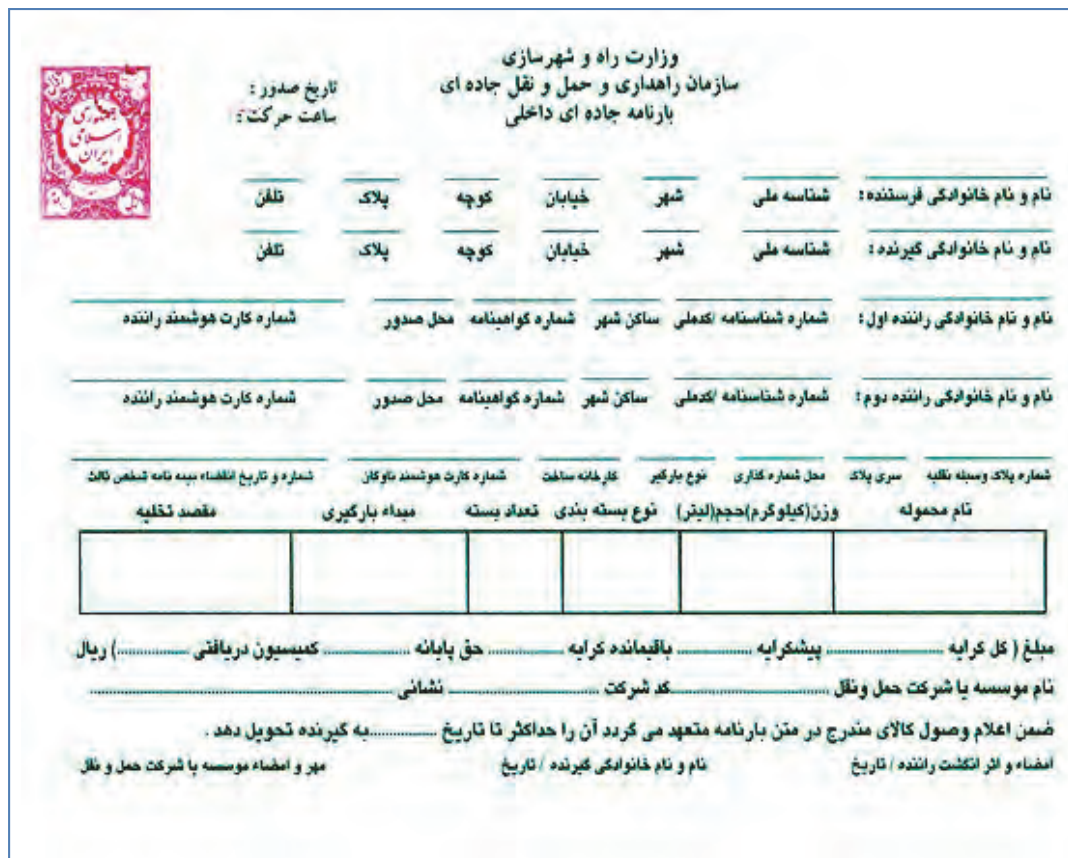 وزارت راه و شهرسازی
سازمان راهداری و حمل و نقل جاده ای
بارنامه جاده ای داخلی
تاریخ صدور :
ساعت حرکت :
جمهوری
اسلامی
ایران
نام و نام خانوادگی فرستنده : شناسه ملی شهر خیابان کوچه پلاک تلفن
نام و نام خانوادگی گیرنده : شناسه ملی شهر خیابان کوچه پلاک تلفن
نام و نام خانوادگی راننده اول : شماره شناسنامه /کدملی ساکن شهر شماره گواهینامه محل صدور شماره کارت هوشمند راننده
نام و نام خانوادگی راننده دوم : شماره شناسنامه /کدملی ساکن شهر شماره گواهینامه محل صدور شماره کارت هوشمند راننده
شماره پلاک وسیله نقلیه سری پلاک محل شماره گذاری نوع بارگیر کارخانه ساخت شماره کارت هوشمند ناوگان شماره و تاریخ انقضاء بیمه نامه شخص ثالث
نام محموله وزن(کیلوگرم)حجم(لیتر) نوع بسته بندی تعداد بسته مبداء بارگیری مقصد تخلیه
مبلغ ( کل کرایه .................. پیشکرایه ............... باقیمانده کرایه ............... حق پایانه ............... کمیسیون دریافتی ...............) ریال
نام موسسه یا شرکت حمل ونقل ........................... کد شرکت ........................... نشانی ..........................................................
ضمن اعلام وصول کالای مندرج در متن بارنامه متعهد می گردد آن را حداکثر تا تاریخ ..............به گیرنده تحویل دهد .
امضاء و اثر انگشت راننده / تاریخ نام و نام خانوادگی گیرنده / تاریخ مهر و امضاء موسسه یا شرکت حمل و نقل